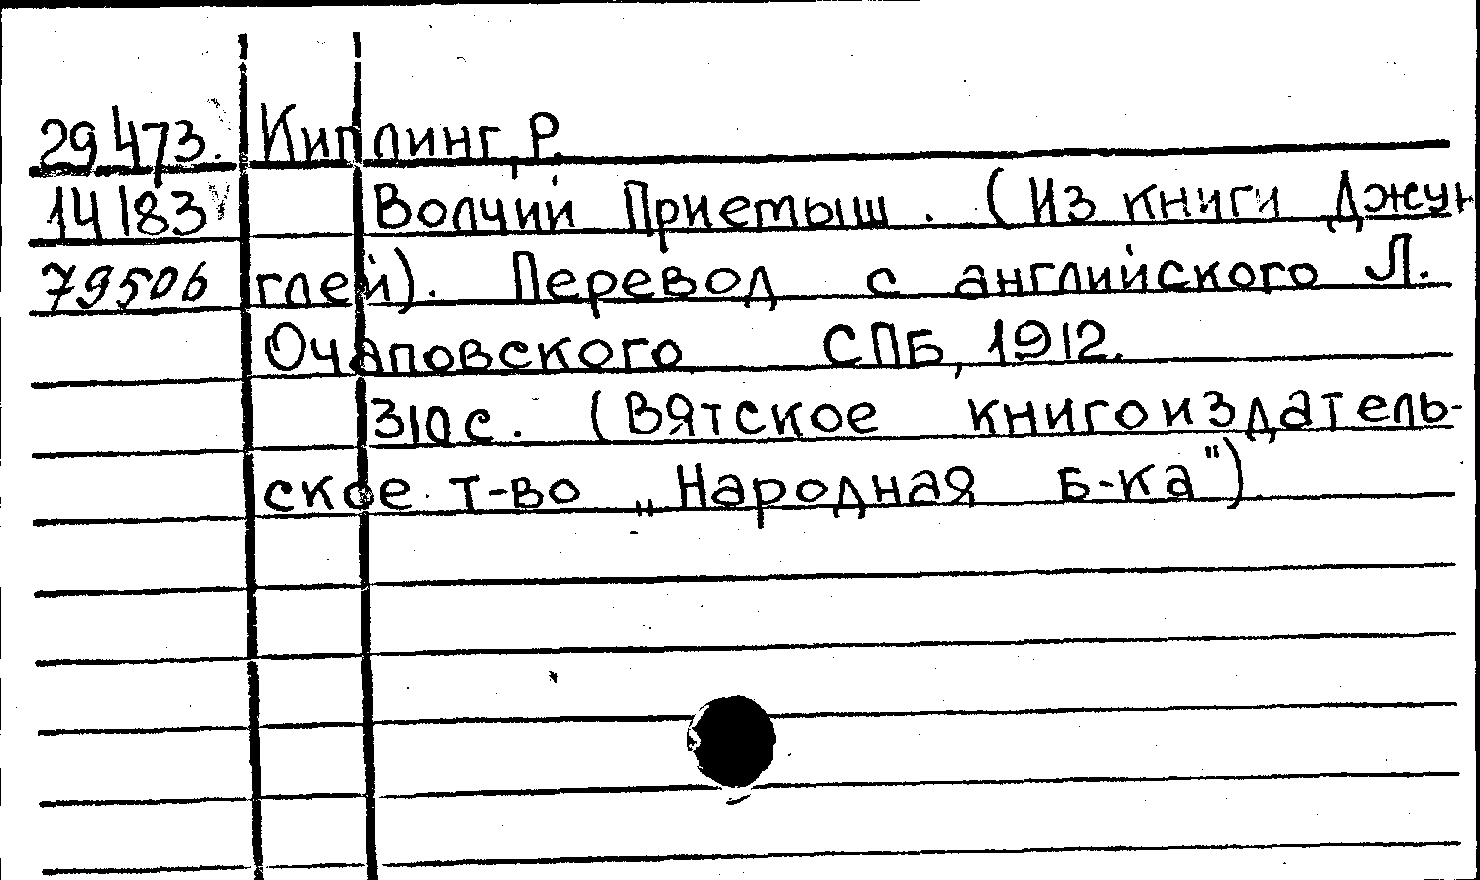 29473. Киплинг, Р.
14183 Волчий Приемыш. (Из книги Джун
79506 глей). Перевод с английского Л.
Очаповского СПБ, 1912.
310 с. (Вятское книгоиздатель-
ское т-во „Народная б-ка")